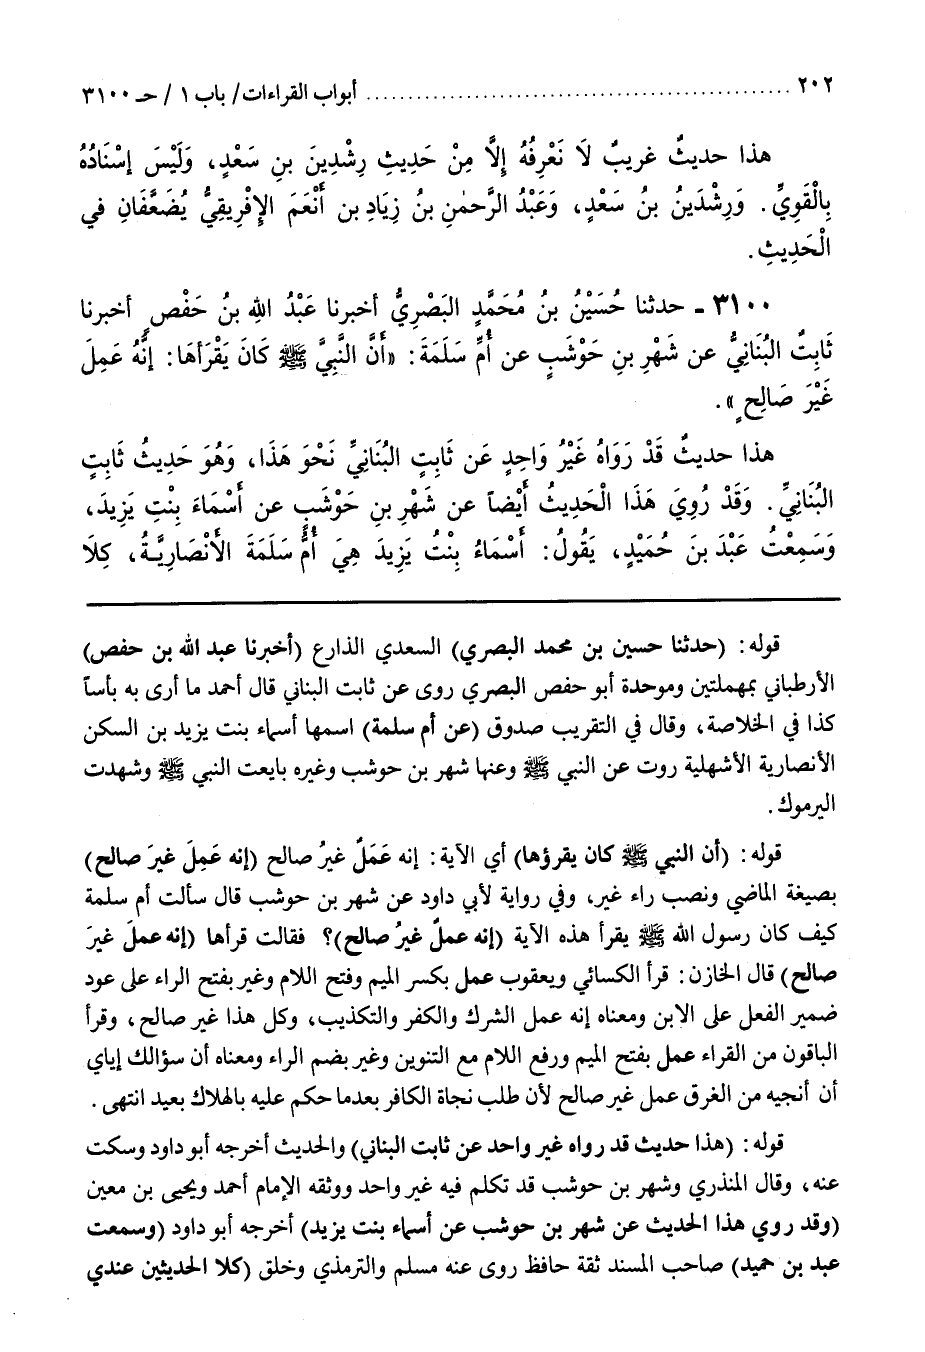 ٢٠٢ ........................................ أبواب القراءات/ باب ١ / حـ ٣١٠٠
هذا حديثٌ غريبٌ لَا نَعْرِفُهُ إِلَّا مِنْ حَدِيثِ رِشْدِينَ بنِ سَعْدٍ، وَلَيْسَ إسْنَادُهُ
بِالْقَوِيِّ. وَرِشْدَينُ بنُ سَعْدٍ، وَعَبْدُ الرَّحْمٰنِ بنُ زِيَادِ بن أَنْعَمَ الإِفْرِيقِيُّ يُضَعَّفَانِ في
الْحَدِيثِ.
٣١٠٠ ـ حدثنا حُسَيْنُ بنُ مُحَمَّدٍ البَصْرِيُّ أخبرنا عَبْدُ اللهِ بنُ حَفْصٍ أخبرنا
ثَابِتٌ البُنَانِيُّ عن شَهْرِ بنِ حَوْشَبٍ عن أُمِّ سَلَمَةَ: «أَنَّ النَّبِيَّ ﷺ كَانَ يَقْرَأهَا: إِنَّهُ عَمِلَ
غَيْرَ صَالِحٍ».
هذا حديثٌ قَدْ رَوَاهُ غَيْرُ وَاحِدٍ عَن ثَابِتٍ البُنَانِيِّ نَحْوَ هَذَا، وَهُوَ حَدِيثُ ثَابِتٍ
البُنَانِيِّ. وَقَدْ رُوِيَ هَذَا الْحَدِيثُ أَيْضاً عن شَهْرِ بنِ حَوْشَبٍ عن أَسْمَاءَ بِنْتِ يَزِيدَ،
وَسَمِعْتُ عَبْدَ بنَ حُمَيْدٍ، يَقُولُ: أَسْمَاءُ بِنْتُ يَزِيدَ هِيَ أُمُّ سَلَمَةَ الأَنْصَارِيَّةُ، كِلَا
قوله: (حدثنا حسين بن محمد البصري) السعدي الذارع (أخبرنا عبد الله بن حفص)
الأرطباني بمهملتين وموحدة أبو حفص البصري روى عن ثابت البناني قال أحمد ما أرى به بأساً
كذا في الخلاصة، وقال في التقريب صدوق (عن أم سلمة) اسمها أسماء بنت يزيد بن السكن
الأنصارية الأشهلية روت عن النبي ﷺ وعنها شهر بن حوشب وغيره بايعت النبي ﷺ وشهدت
اليرموك.
قوله: (أن النبي ﷺ كان يقرؤها) أي الآية: إنه عَمَلٌ غيرُ صالح (إنه عَمِلَ غيرَ صالح)
بصيغة الماضي ونصب راء غير، وفي رواية لأبي داود عن شهر بن حوشب قال سألت أم سلمة
كيف كان رسول الله ﷺ يقرأ هذه الآية (إنه عملٌ غيرُ صالح)؟ فقالت قرأها (إنه عملَ غيرَ
صالح) قال الخازن: قرأ الكسائي ويعقوب عمل بكسر الميم وفتح اللام وغير بفتح الراء على عود
ضمير الفعل على الابن ومعناه إنه عمل الشرك والكفر والتكذيب، وكل هذا غير صالح، وقرأ
الباقون من القراء عمل بفتح الميم ورفع اللام مع التنوين وغير بضم الراء ومعناه أن سؤالك إياي
أن أنجيه من الغرق عمل غير صالح لأن طلب نجاة الكافر بعدما حكم عليه بالهلاك بعيد انتهى.
قوله: (هذا حديث قد رواه غير واحد عن ثابت البناني) والحديث أخرجه أبو داود وسكت
عنه، وقال المنذري وشهر بن حوشب قد تكلم فيه غير واحد ووثقه الإمام أحمد ويحيى بن معين
(وقد روي هذا الحديث عن شهر بن حوشب عن أسماء بنت يزيد) أخرجه أبو داود (وسمعت
عبد بن حميد) صاحب المسند ثقة حافظ روى عنه مسلم والترمذي وخلق (كلا الحديثين عندي